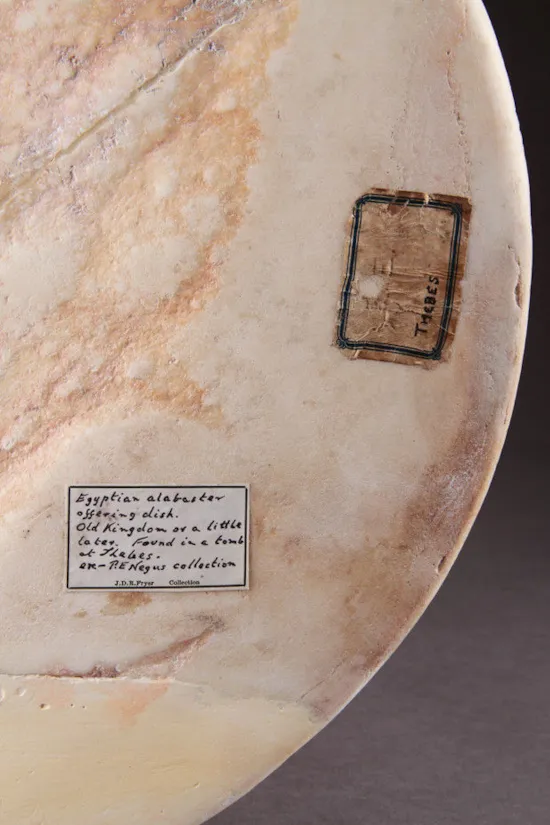 THEBES
Egyptian alabaster
offering dish.
Old Kingdom or a little
later. Found in a tomb
at Thebes.
ex- P.E Negus collection
J.D.R.Fryer Collection